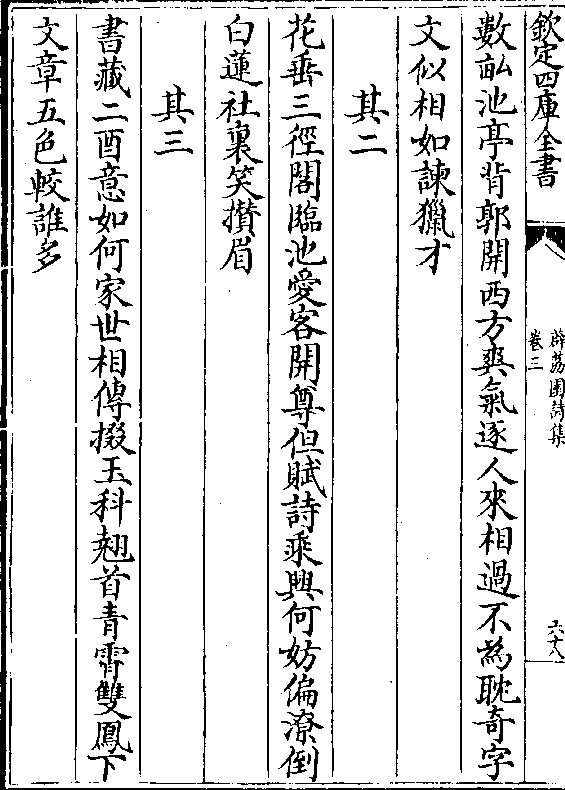 欽定四庫全書
薜荔園詩集
卷三
六十八
數畝池亭背郭開西方爽氣逐人來相過不為耽奇字
文似相如諫獵才
其二
花垂三徑閣臨池愛客開尊但賦詩乘興何妨偏潦倒
白蓮社裏笑攅眉
其三
書藏二酉意如何家世相傳掇玉科翹首青霄雙鳳下
文章五色較誰多